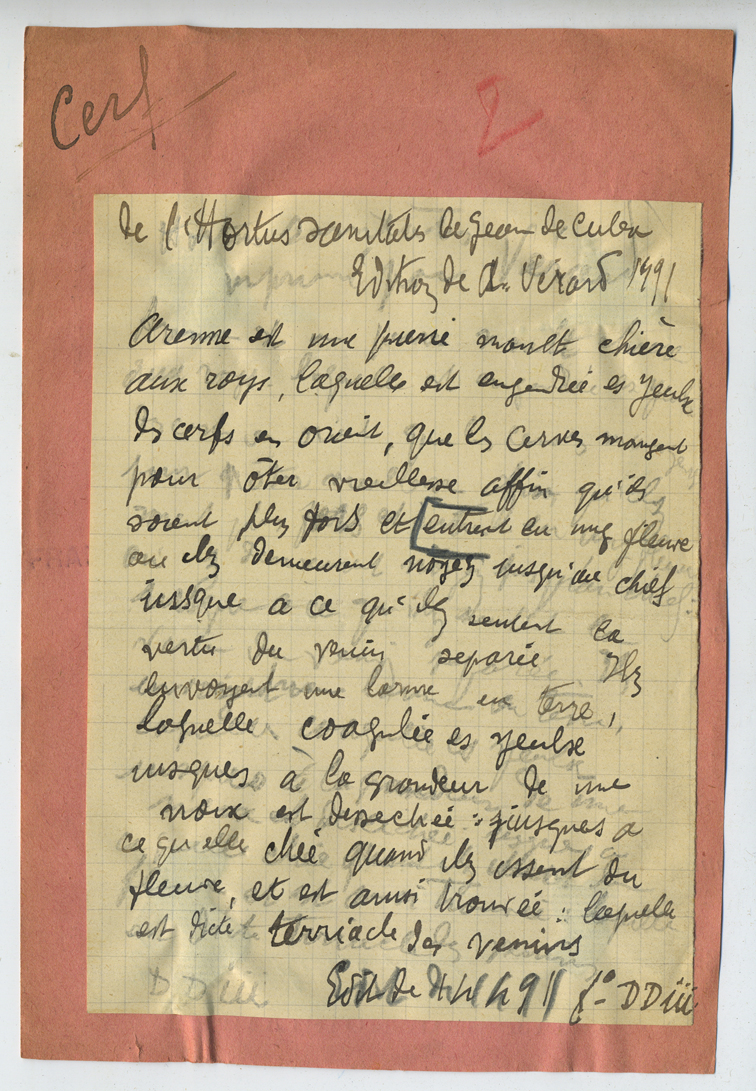 Cerf
2
de l'Hortus sanitatis de Jean de Cuba
Edition de A. Vérard 1491
Arenne est une pierre moult chière
aux roys, laquelle est engendrée es yeulx
des cerfs en orient, que les cerves mangent
pour ôter vieillesse affin qu'ils
soient plus fors et entrent en ung fleuve
ou ilz demeurent noyez jusqu'au chief
jusque a ce qu'ilz sentent la
vertu du venin separée Ilz
envoyent une larme en terre,
laquelle coagulée es yeulx
jusques à la grandeur de une
noix est dessechée : jusques a
ce qu'elle chée quand ilz issent du
fleuve, et est ainsi trouvée : laquelle
est dicte terriacle des venins
Edit de 1491 f° DDiii
DDiii